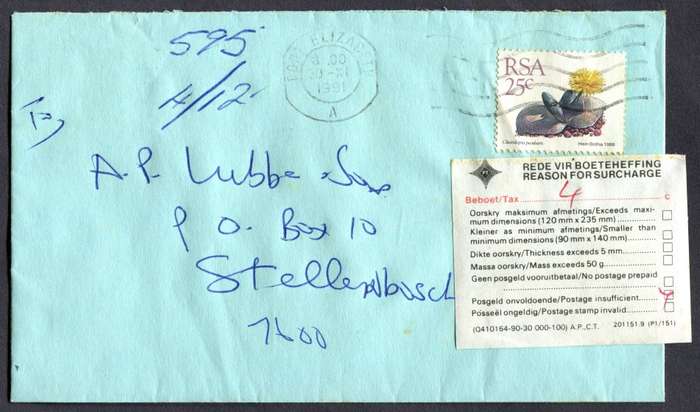 595
4/12
PORT ELIZABETH
00
30-XI
1991
A
RSA
25c
Hein Botha 1988
To
A.P. Lubbe
P O. Box 10
Stellenbosch
7600
REDE VIR BOETEHEFFING
REASON FOR SURCHARGE
Beboet/Tax 4 c
Oorskry maksimum afmetings/Exceeds maxi-
mum dimensions (120 mm x 235 mm)
Kleiner as minimum afmetings/Smaller than
minimum dimensions (90 mm x 140 mm)
Dikte oorskry/Thickness exceeds 5 mm
Massa oorskry/Mass exceeds 50 g
Geen posgeld vooruitbetaal/No postage prepaid
Posgeld onvoldoende/Postage insufficient
Posseël ongeldig/Postage stamp invalid
(0410164-90-30 000-100) A.P.,C.T. 201151.9 (P1/151)